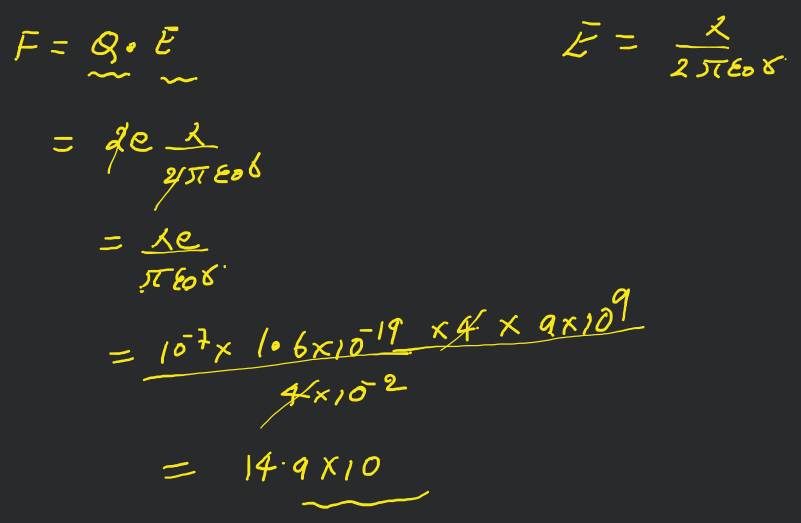 F = Q . E
E = λ / 2πε₀r
= 2e λ / 2πε₀r
= λe / πε₀r
= 10⁻⁷ × 1.6×10⁻¹⁹ × 4 × 9×10⁹ / 4×10⁻²
= 14.9×10